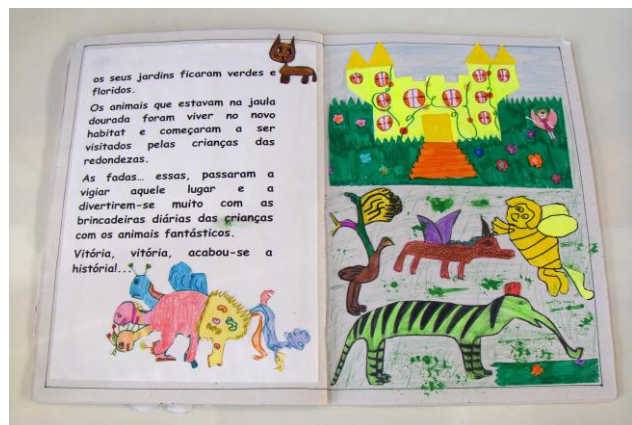 os seus jardins ficaram verdes e
floridos.
Os animais que estavam na jaula
dourada foram viver no novo
habitat e começaram a ser
visitados pelas crianças das
redondezas.
As fadas… essas, passaram a
vigiar aquele lugar e a
divertirem-se muito com as
brincadeiras diárias das crianças
com os animais fantásticos.
Vitória, vitória, acabou-se a
história!...